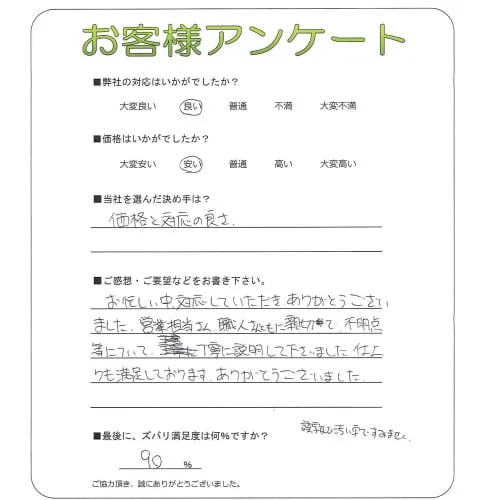 お客様アンケート
■弊社の対応はいかがでしたか？
大変良い 良い 普通 不満 大変不満
■価格はいかがでしたか？
大変安い 安い 普通 高い 大変高い
■当社を選んだ決め手は？
価格と対応の良さ.
■ご感想・ご要望などをお書き下さい。
お忙しい中、対応していただき ありがとうござい
ました。営業担当さん、職人さんともに親切で、不明点
等について、丁寧に説明して下さいました 仕上
りも満足しております。ありがとうございました。
汚い字ですみません。
■最後に、ズバリ満足度は何％ですか？
90 %
ご協力頂き、誠にありがとうございました。